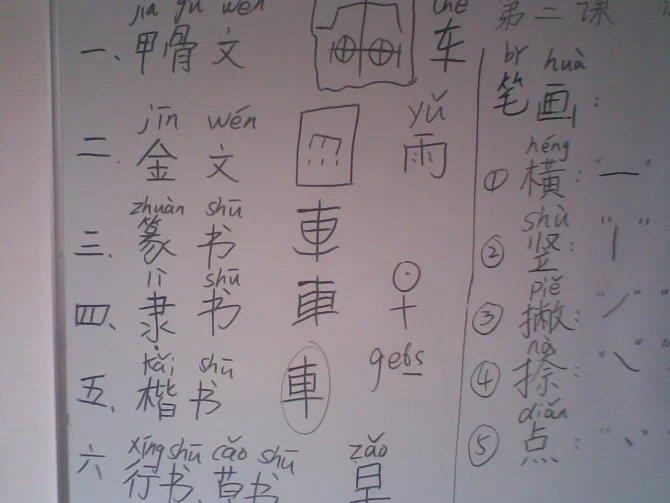 jiǎ gǔ wén
一、甲骨文 车
chē
jīn wén yǔ
二、金文 雨
zhuàn shū
三、篆书 車
lì shū
四、隶书 車
kǎi shū
五、楷书 車
xíng shū cǎo shū zǎo
六 行书、草书 早
第二课
bǐ huà
笔画:
héng
① 橫: "一"
shù
② 竖: "丨"
piě
③ 撇: "丿"
nà
④ 捺: "㇏"
diǎn
⑤ 点: "丶"